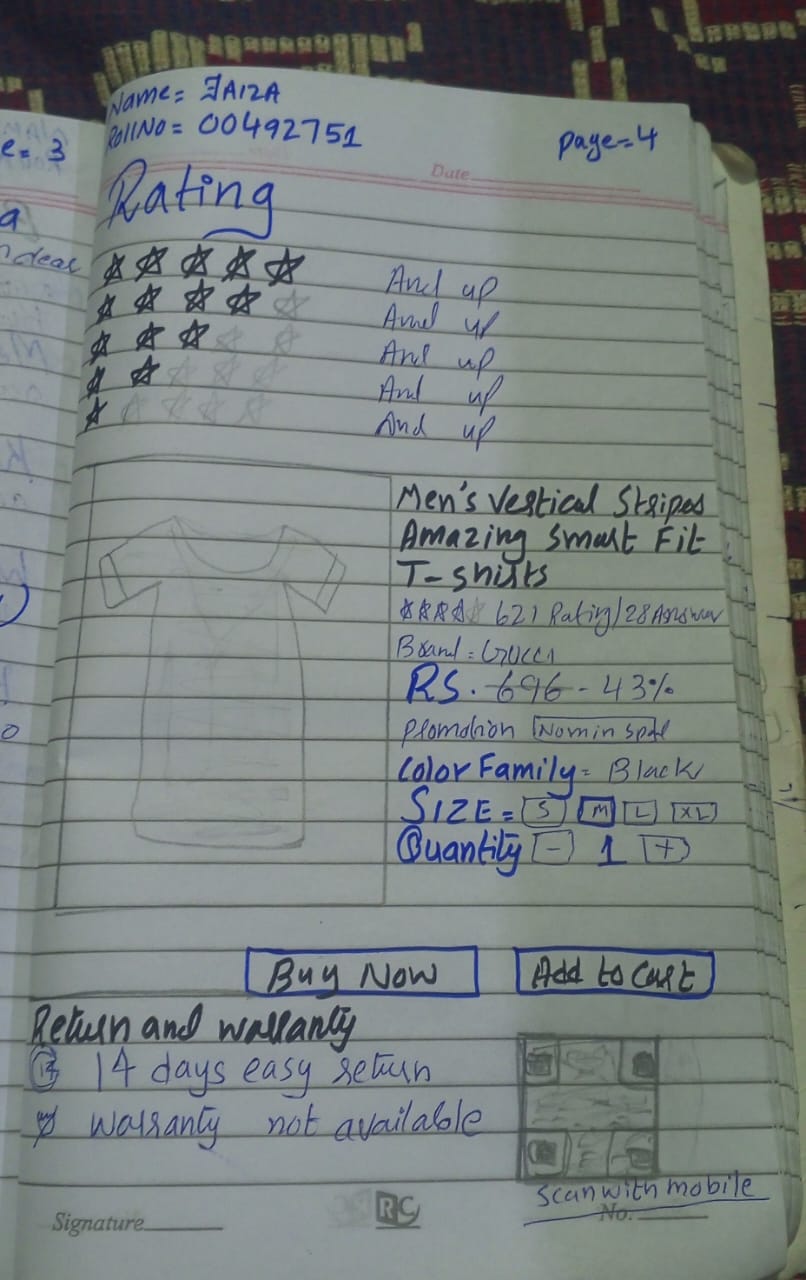 e = 3
a
ndeas
o
Name = FAIZA
Roll No = 00492751
page=4
Date
Rating
And up
And up
And up
And up
And up
Men's Vertical Stripes
Amazing Smart Fit
T-shirts
621 Rating/28 Answer
Brand = GUCCI
RS. 696 - 43%
Promotion
Color Family = Black
SIZE = S M L XL
Quantity - 1 +
Buy Now Add to Cart
Return and warranty
14 14 days easy return
warranty not available
Scan with mobile
Signature RC No.